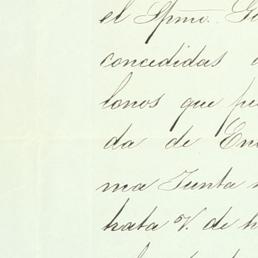 el Spmo. Go
concedidas
lonos que pu
da de En
ma Junta
hata V. de h